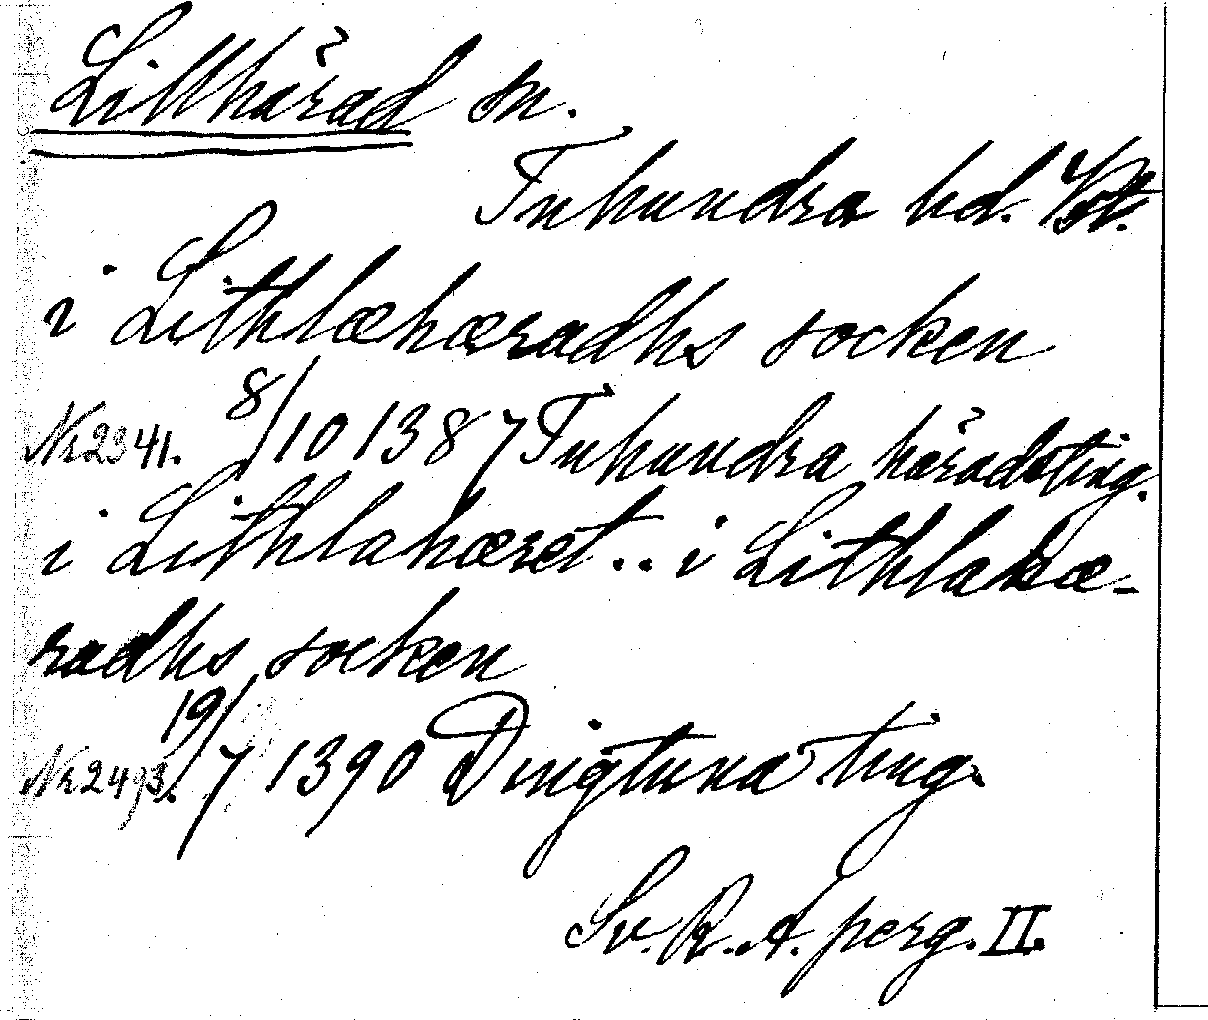 Lillhärad sn.
Tuhundra hd.
i Lithlæhæradhs socken
Nr 2341. 8/10 1387 Tuhundra häradsting.
i Lithlahæret.. i Lithlahæ-
radhs socken
Nr 2493. 19/7 1390 Dingtuna ting.
Sv. R. A. perg. II.